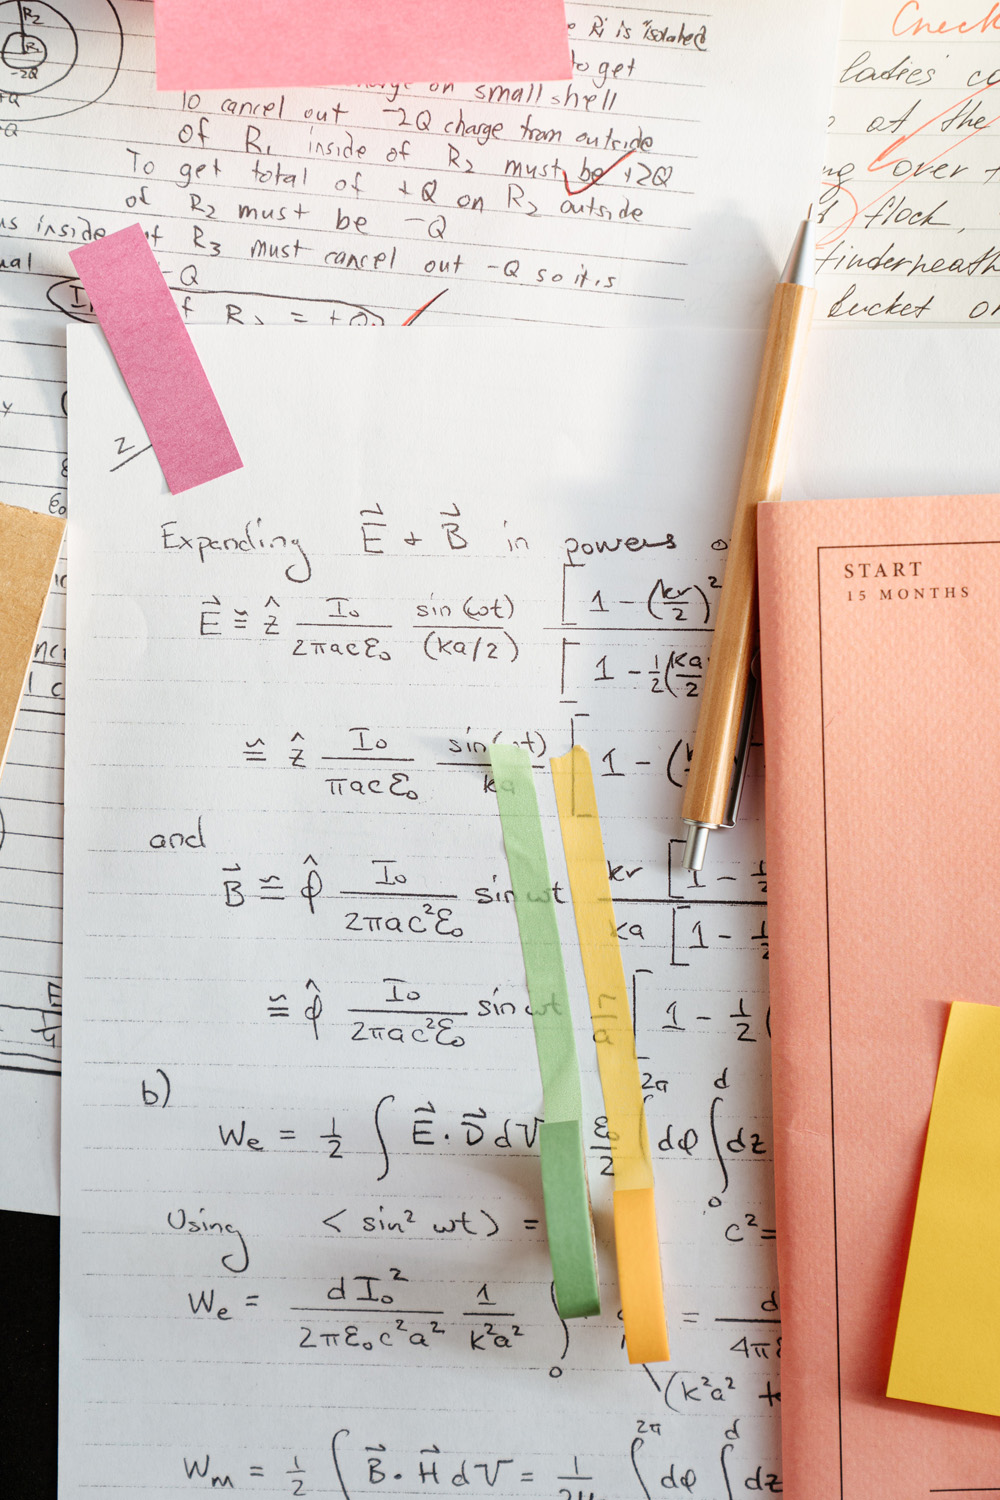 R₂
R₁
-2Q
+Q
-Q
Ri is "isolated
to get
on small shell
To cancel out -2Q charge from outside
of R₁ inside of R₂ must be +2Q
To get total of +Q on R₂ outside
of R₂ must be -Q
inside of R₃ must cancel out -Q so it is
-Q
R₂ = +Q
Check
ladies'
at the
over
flock,
bucket
2
Expanding E⃗ + B⃗ in powers
E⃗ ≅ ẑ I₀/(2πacε₀) sin(ωt)/(ka/2) [1 - (kr/2)²] / [1 - ½(ka/2)
≅ ẑ I₀/(πacε₀) sin(ωt)/ka [1 - (
and
B⃗ ≅ φ̂ I₀/(2πac²ε₀) sin ωt kr [1 - ½ / ka [1 - ½
≅ φ̂ I₀/(2πac²ε₀) sin ωt r/a [1 - ½ (
b)
We = ½ ∫ E⃗ · D⃗ dV ε₀/2 ∫ 2π dφ ∫₀ᵈ dz
Using < sin² ωt > = c² =
We = dI₀²/(2πε₀c²a²) 1/(k²a²) ∫₀ = d/4π
(k²a² +
Wm = ½ ∫ B⃗ · H⃗ dV = 1/ ∫ 2π dφ ∫ d dz
START
15 MONTHS